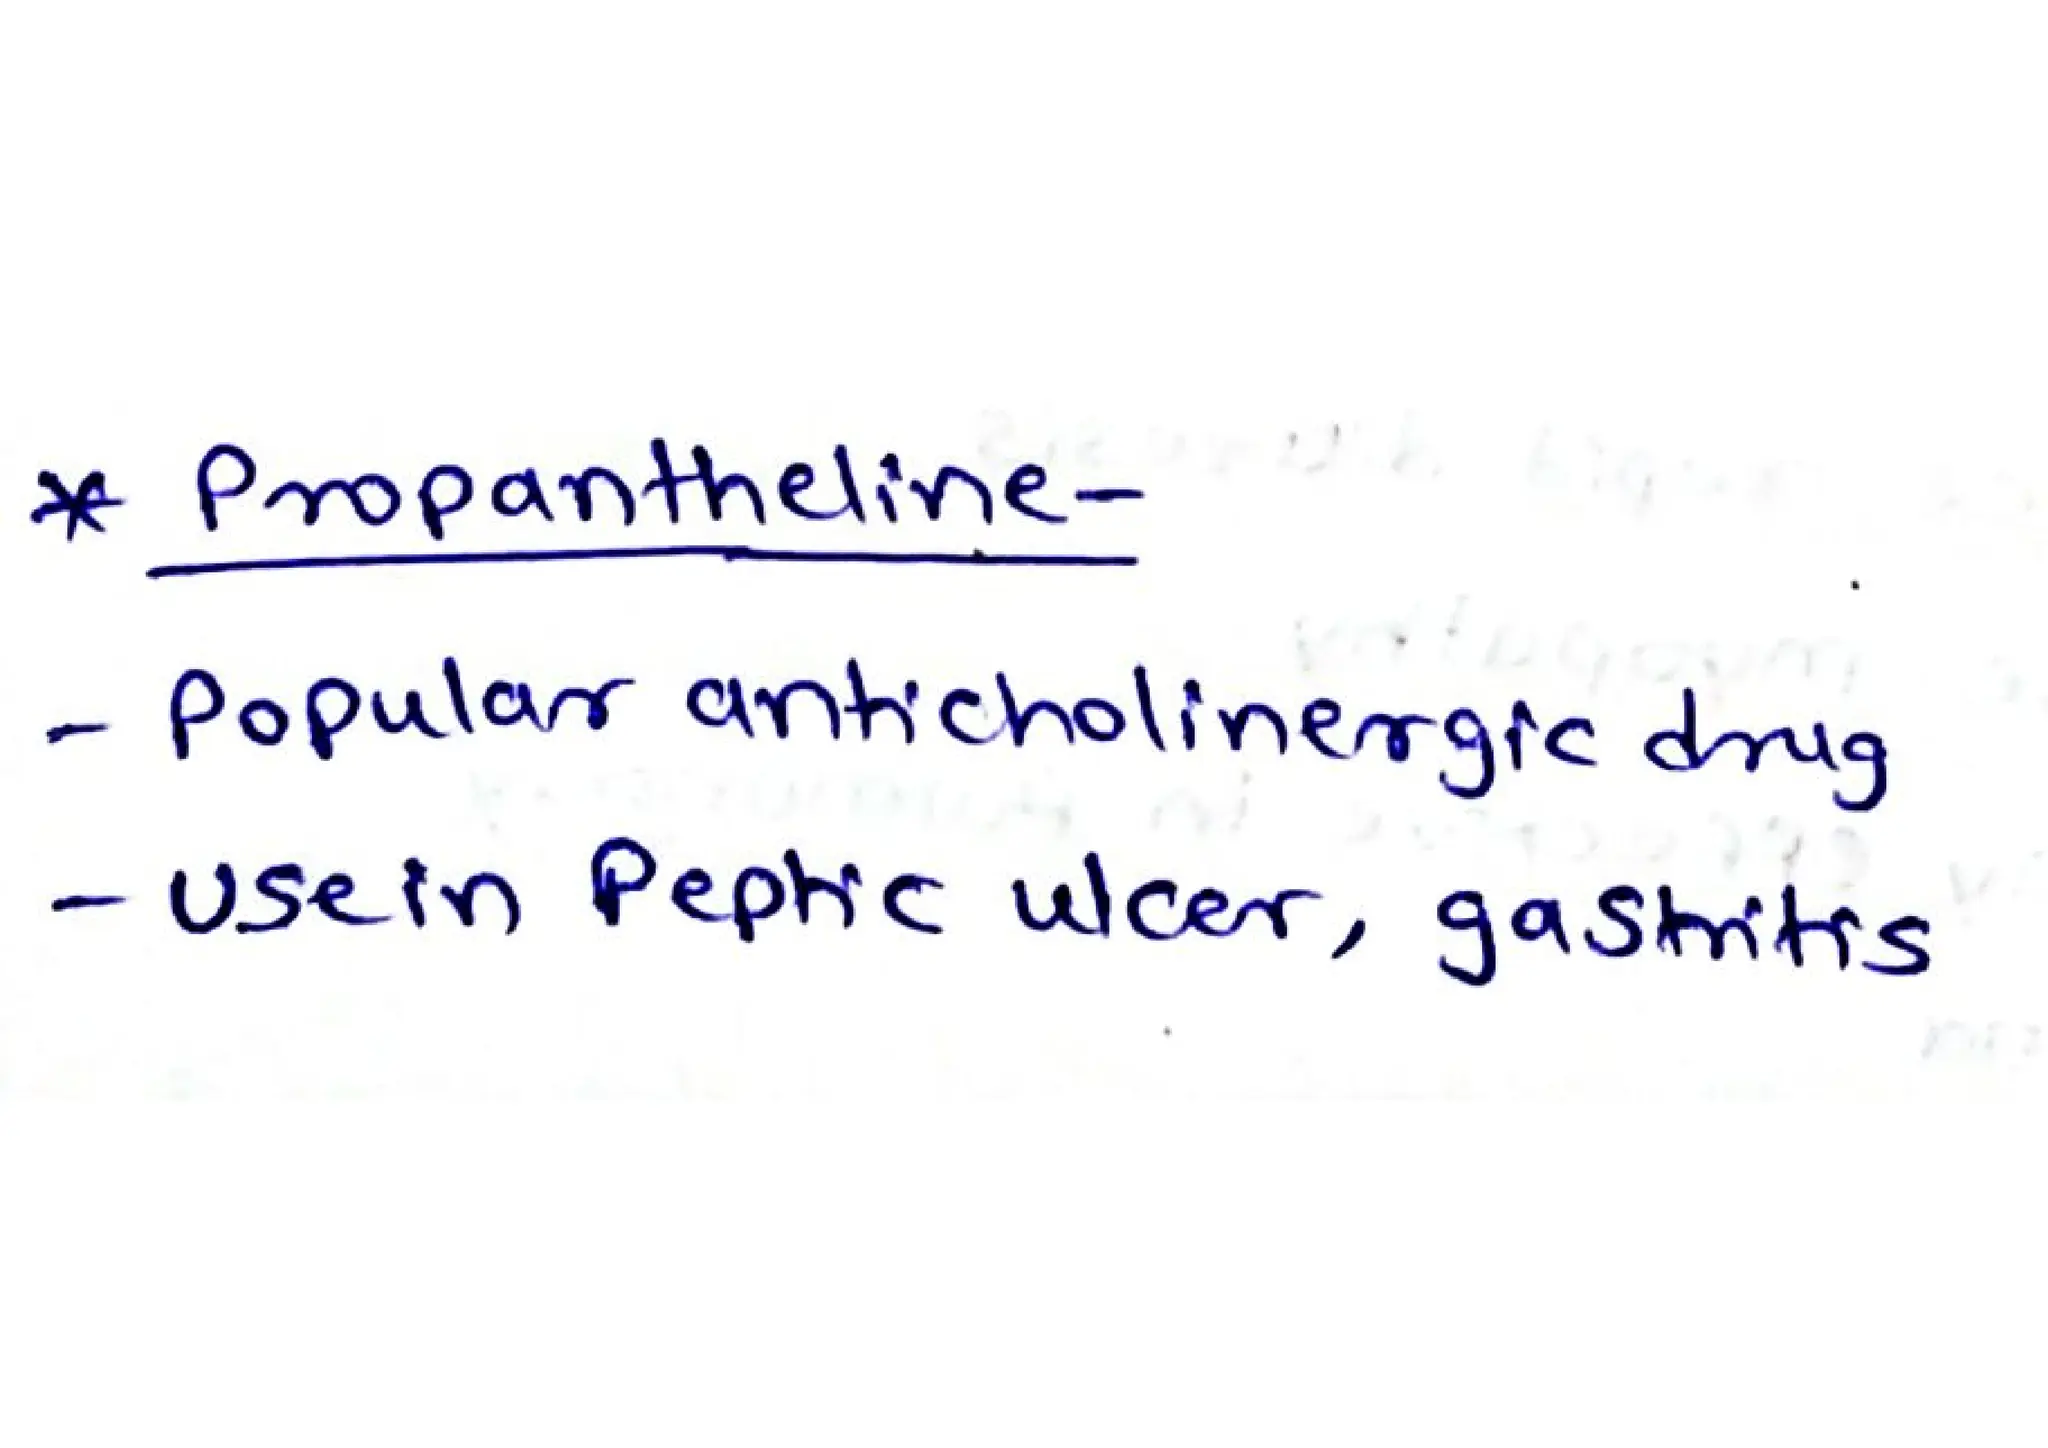 * Propantheline-
- Popular anticholinergic drug
- Use in Peptic ulcer, gastritis